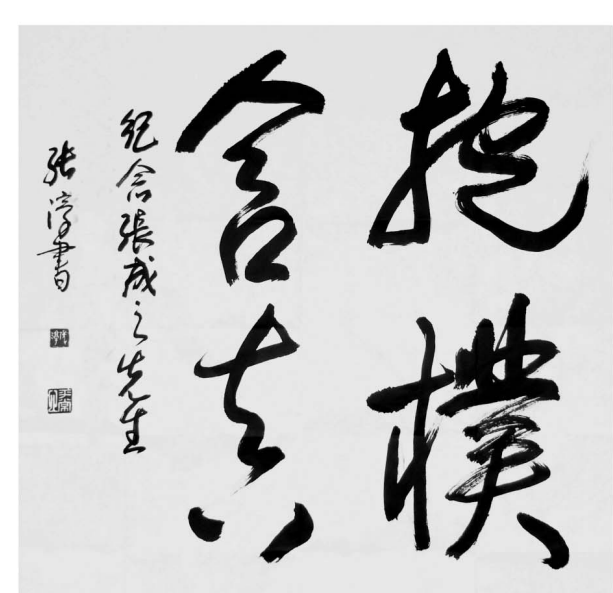 抱樸
含真
紀念張成之先生
张淳書